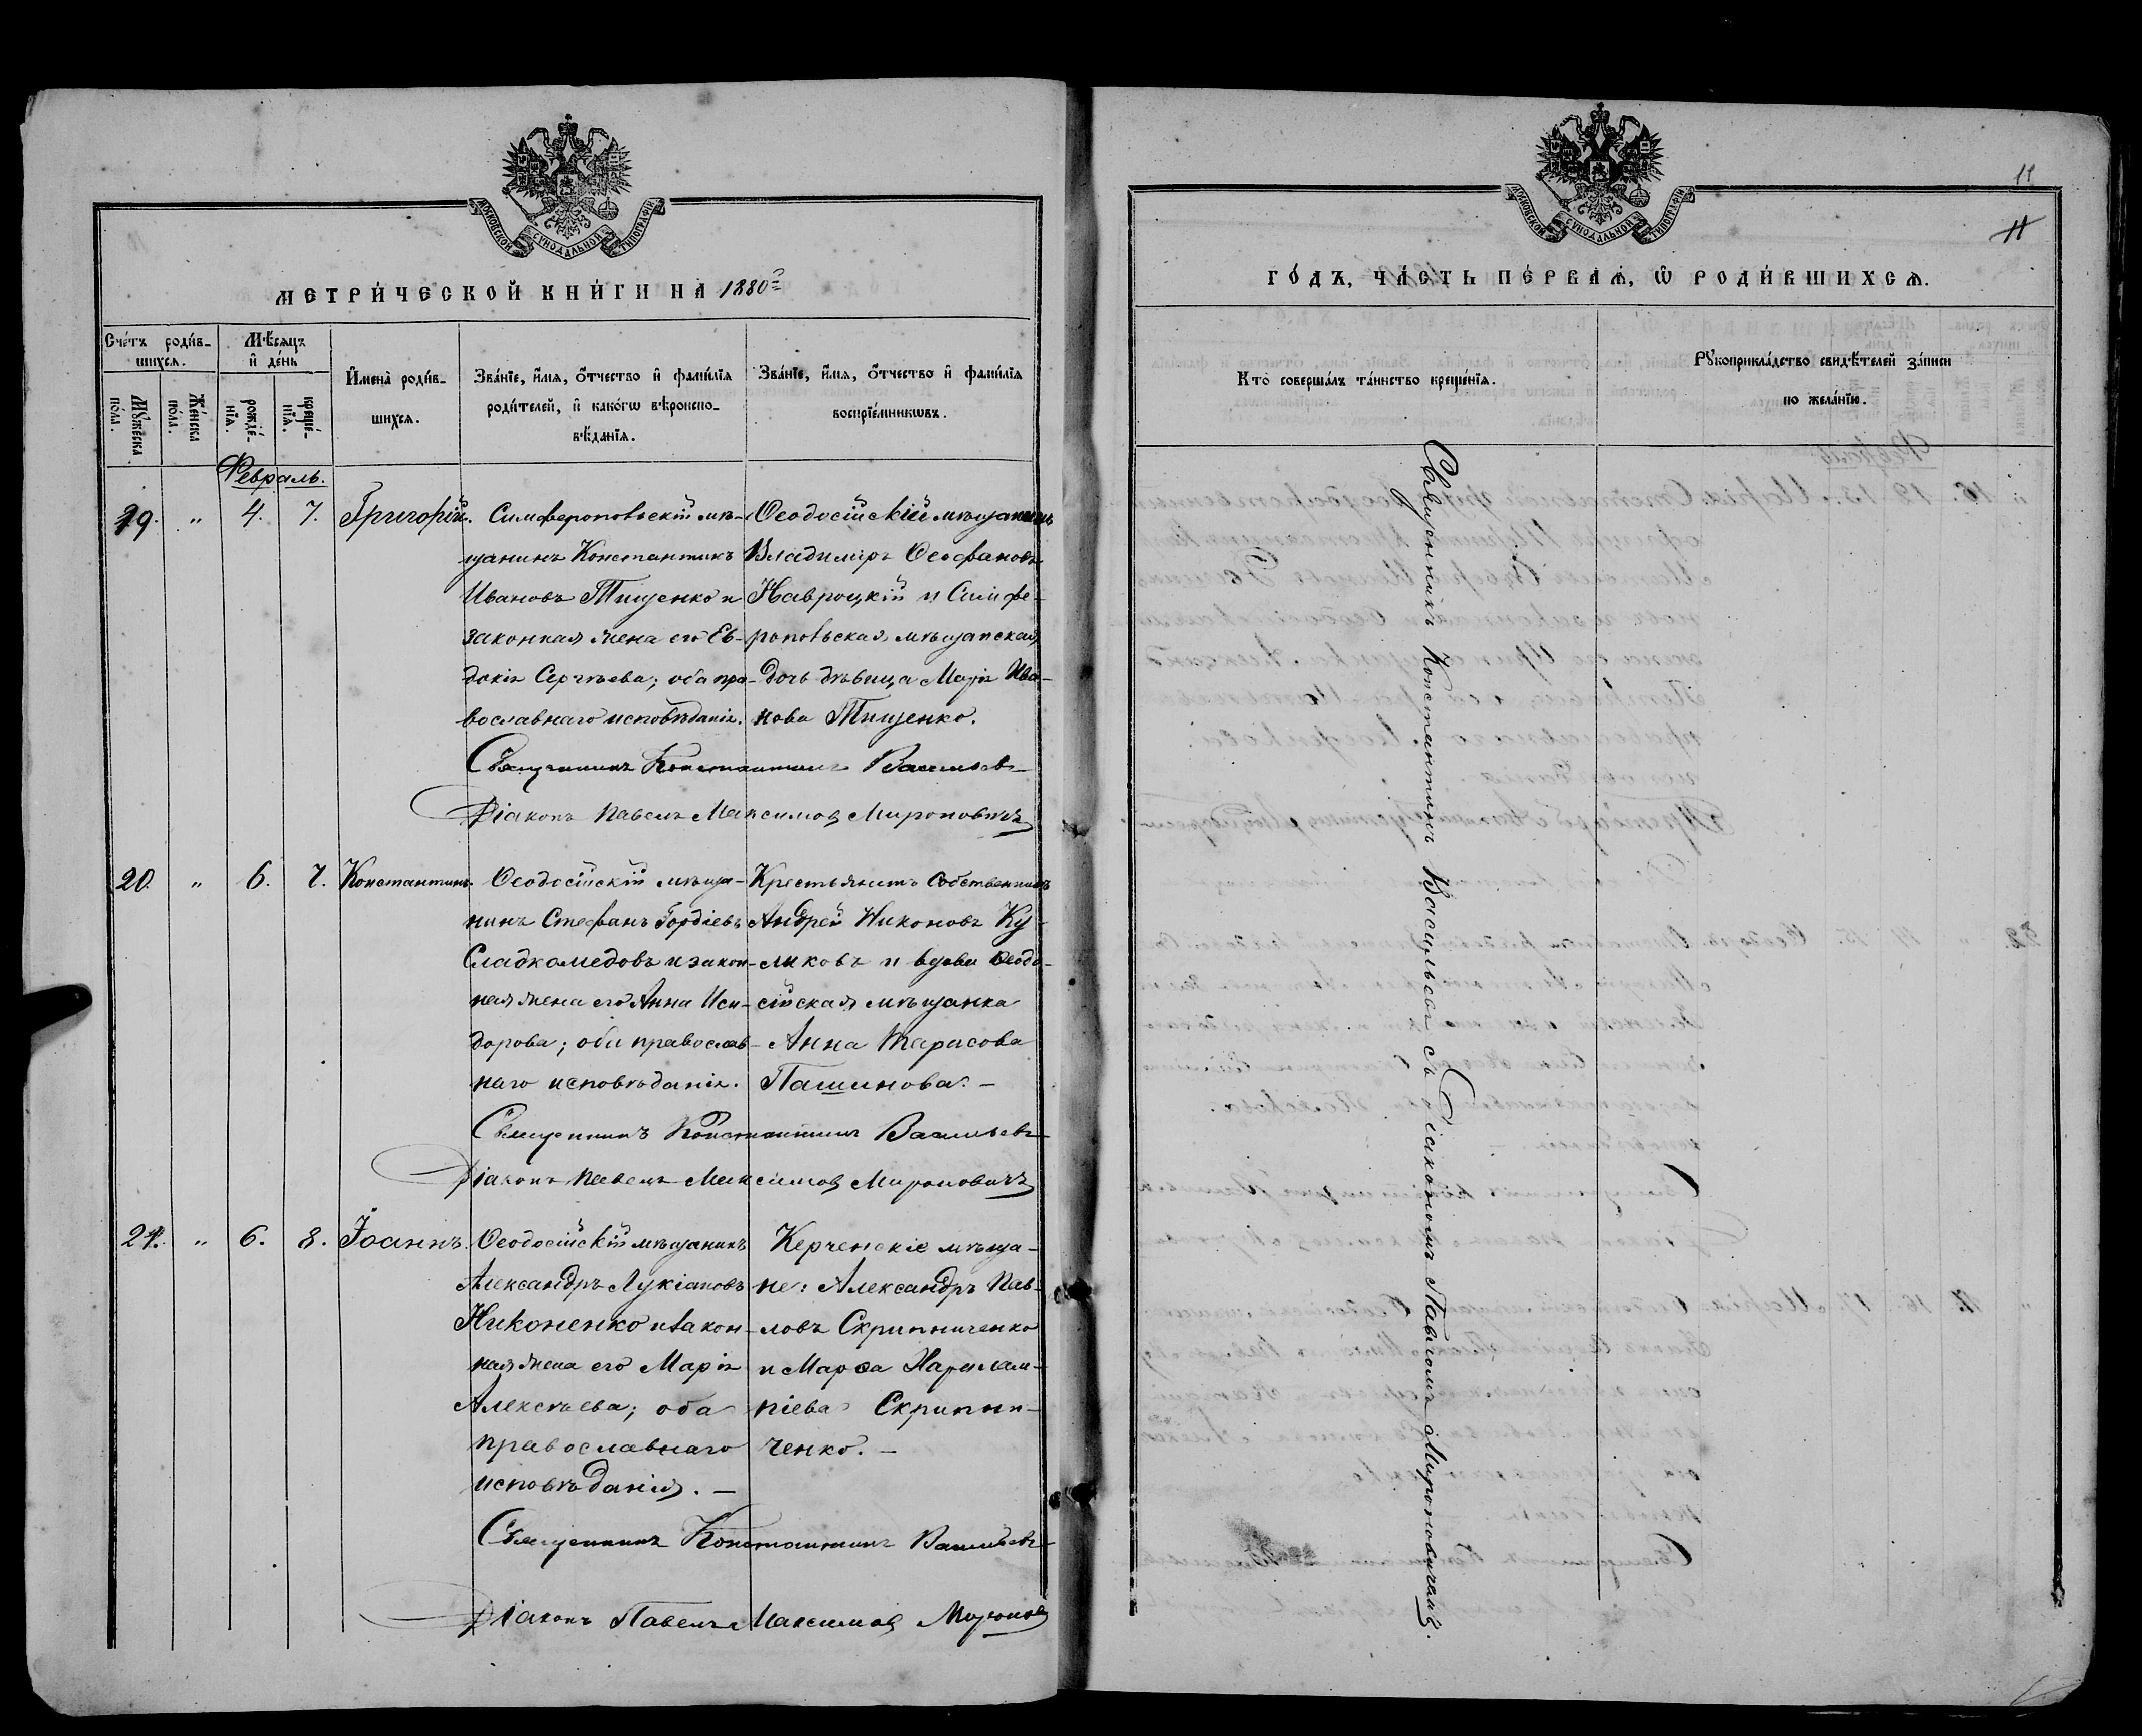 МОСКОВСКОЙ СУНОДАЛЬНОЙ ТИПОГРАФІИ
МЕТРИ́ЧЕСКОЙ КНИ́ГИ НА 1880 г.
Сче́тъ роди́в-
шихся.
Мꙋ́жеска по́ла.
Же́нска по́ла.
Мѣ́сяцъ
и҆ де́нь
рожде́-
нїѧ.
креще́-
нїѧ.
И҆мена̀ роди́в-
шихся.
Зва́нїе, и҆́мѧ, ѻ҆́тчество и҆ фами́лїѧ
роди́телей, и҆ како́гѡ вѣроиспо-
вѣ́данїѧ.
Зва́нїе, и҆́мѧ, ѻ҆́тчество и҆ фами́лїѧ
воспрїе́мникѡвъ.
Февраль.
19. " 4. 7. Григорій.
Симферопольскій мѣ-
щанинъ Константинъ
Ивановъ Тищенко и
законная жена его Ев-
докія Сергѣева; оба пра-
вославнаго исповѣданія.
Ѳеодосійскій мѣщанинъ
Владиміръ Ѳеофановъ
Навроцкій и Симфе-
ропольская мѣщанская
дочь дѣвица Марія Ива-
нова Тищенко.
Священникъ Константинъ Васильевъ
Діаконъ Павелъ Максимов Мироновичъ
20. " 6. 7. Константинъ.
Ѳеодосійскій мѣща-
нинъ Стефанъ Гордіевъ
Сладкомедовъ и закон-
ная жена его Анна Иси-
дорова; оба православ-
наго исповѣданія.
Крестьянинъ Собственникъ
Андрей Никоновъ Ку-
ликовъ и вдова Ѳеодо-
сійская мѣщанка
Анна Тарасова
Пашинова. –
Священникъ Константинъ Васильевъ
Діаконъ Павелъ Максимов Мироновичъ
21. " 6. 8. Іоаннъ.
Ѳеодосійскій мѣщанинъ
Александръ Лукіановъ
Никоненко и закон-
ная жена его Марія
Алексѣева; оба
православнаго
исповѣданія. –
Керченскіе мѣща-
не: Александръ Пав-
ловъ Скрипниченко
и Марѳа Харалам-
піева Скрипни-
ченко. –
Священникъ Константинъ Васильевъ
Діаконъ Павелъ Максимов
11
11
МОСКОВСКОЙ СУНОДАЛЬНОЙ ТИПОГРАФІИ
ГО́ДЪ, ЧА́СТЬ ПЕ́РВАѦ, Ѡ҆ РОДИ́ВШИХСѦ.
Кто̀ соверша́лъ та́инство креще́нїѧ.
Рꙋкоприкла́дство свидѣ́телей за́писи
по жела́нїю.
Священникъ Константинъ Васильевъ съ Діакономъ Павломъ Мироновичемъ.